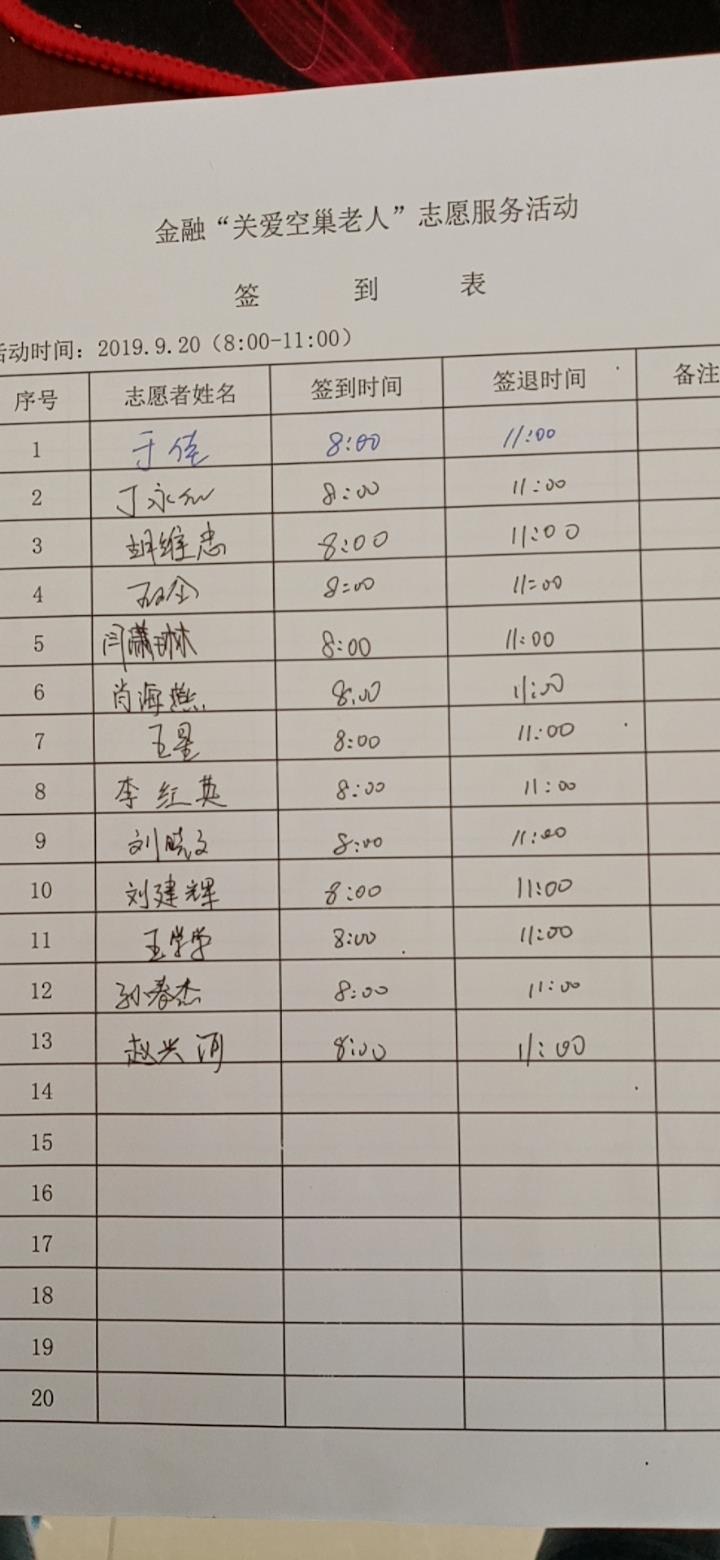 金融“关爱空巢老人”志愿服务活动
签 到 表
活动时间：2019.9.20（8:00-11:00）
序号 志愿者姓名 签到时间 签退时间 备注
1 于佳 8:00 11:00
2 丁永 8:00 11:00
3 胡维忠 8:00 11:00
4 8:00 11:00
5 闫潇琳 8:00 11:00
6 肖海燕 8:00 11:00
7 王星 8:00 11:00
8 李红英 8:00 11:00
9 刘晓文 8:00 11:00
10 刘建辉 8:00 11:00
11 王学学 8:00 11:00
12 孙春杰 8:00 11:00
13 赵兴河 8:00 11:00
14
15
16
17
18
19
20